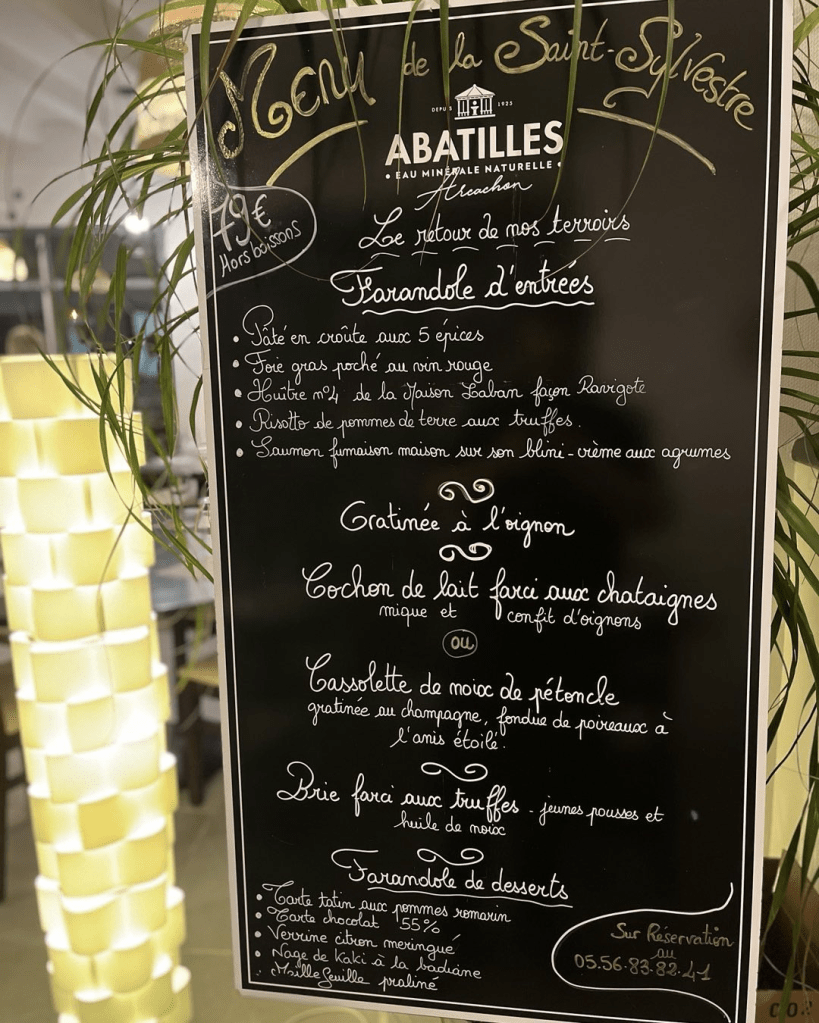 Menu de la Saint-Sylvestre
DEPUIS 1925
ABATILLES
• EAU MINÉRALE NATURELLE •
Arcachon
79€
Hors boissons
Le retour de nos terroirs
Farandole d'entrées
• Pâté en croûte aux 5 épices
• Foie gras poché au vin rouge
• Huître n°4 de la Maison Laban façon Ravigote
• Risotto de pommes de terre aux truffes.
• Saumon fumaison maison sur son blini - crème aux agrumes
Gratinée à l'oignon
Cochon de lait farci aux chataignes
mique et confit d'oignons
ou
Cassolette de noix de pétoncle
gratinée au champagne, fondue de poireaux à
l'anis étoilé.
Brie farci aux truffes - jeunes pousses et
huile de noix
Farandole de desserts
• Tarte tatin aux pommes romarin
• Tarte chocolat 55%
• Verrine citron meringué
• Nage de kaki à la badiane
• Maille feuille praliné
Sur Réservation
au
05.56.83.82.41